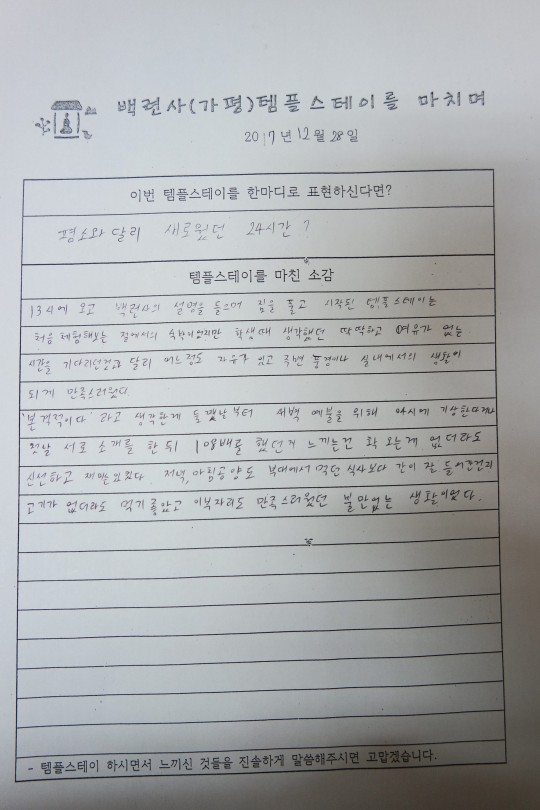 백련사(가평)템플스테이를 마치며
2017년 12월 28일
이번 템플스테이를 한마디로 표현하신다면?
평소와 달리 새로웠던 24시간?
템플스테이를 마친 소감
13시에 오고 백련사의 설명을 들으며 짐을 풀고 시작된 템플스테이는
처음 체험해보는 절에서의 숙박이였지만 학생때 생각했던 딱딱하고 여유가 없는
시간을 기다리던것과 달리 어느정도 자유가 있고 주변 풍경이나 실내에서의 생활이
되게 만족스러웠다.
'본격적이다' 라고 생각한게 둘쨋날부터 새벽 예불을 위해 04시에 기상한다거나
첫날 서로 소개를 한 뒤 108배를 했던거 느끼는건 확 오는게 없더라도
신선하고 재미있었다. 저녁, 아침공양도 부대에서 먹던 식사보다 간이 잘 들어간건지
고기가 없더라도 먹기 좋았고 이부자리도 만족스러웠던 불만없는 생활이었다.
- 템플스테이 하시면서 느끼신 것들을 진솔하게 말씀해주시면 고맙겠습니다.